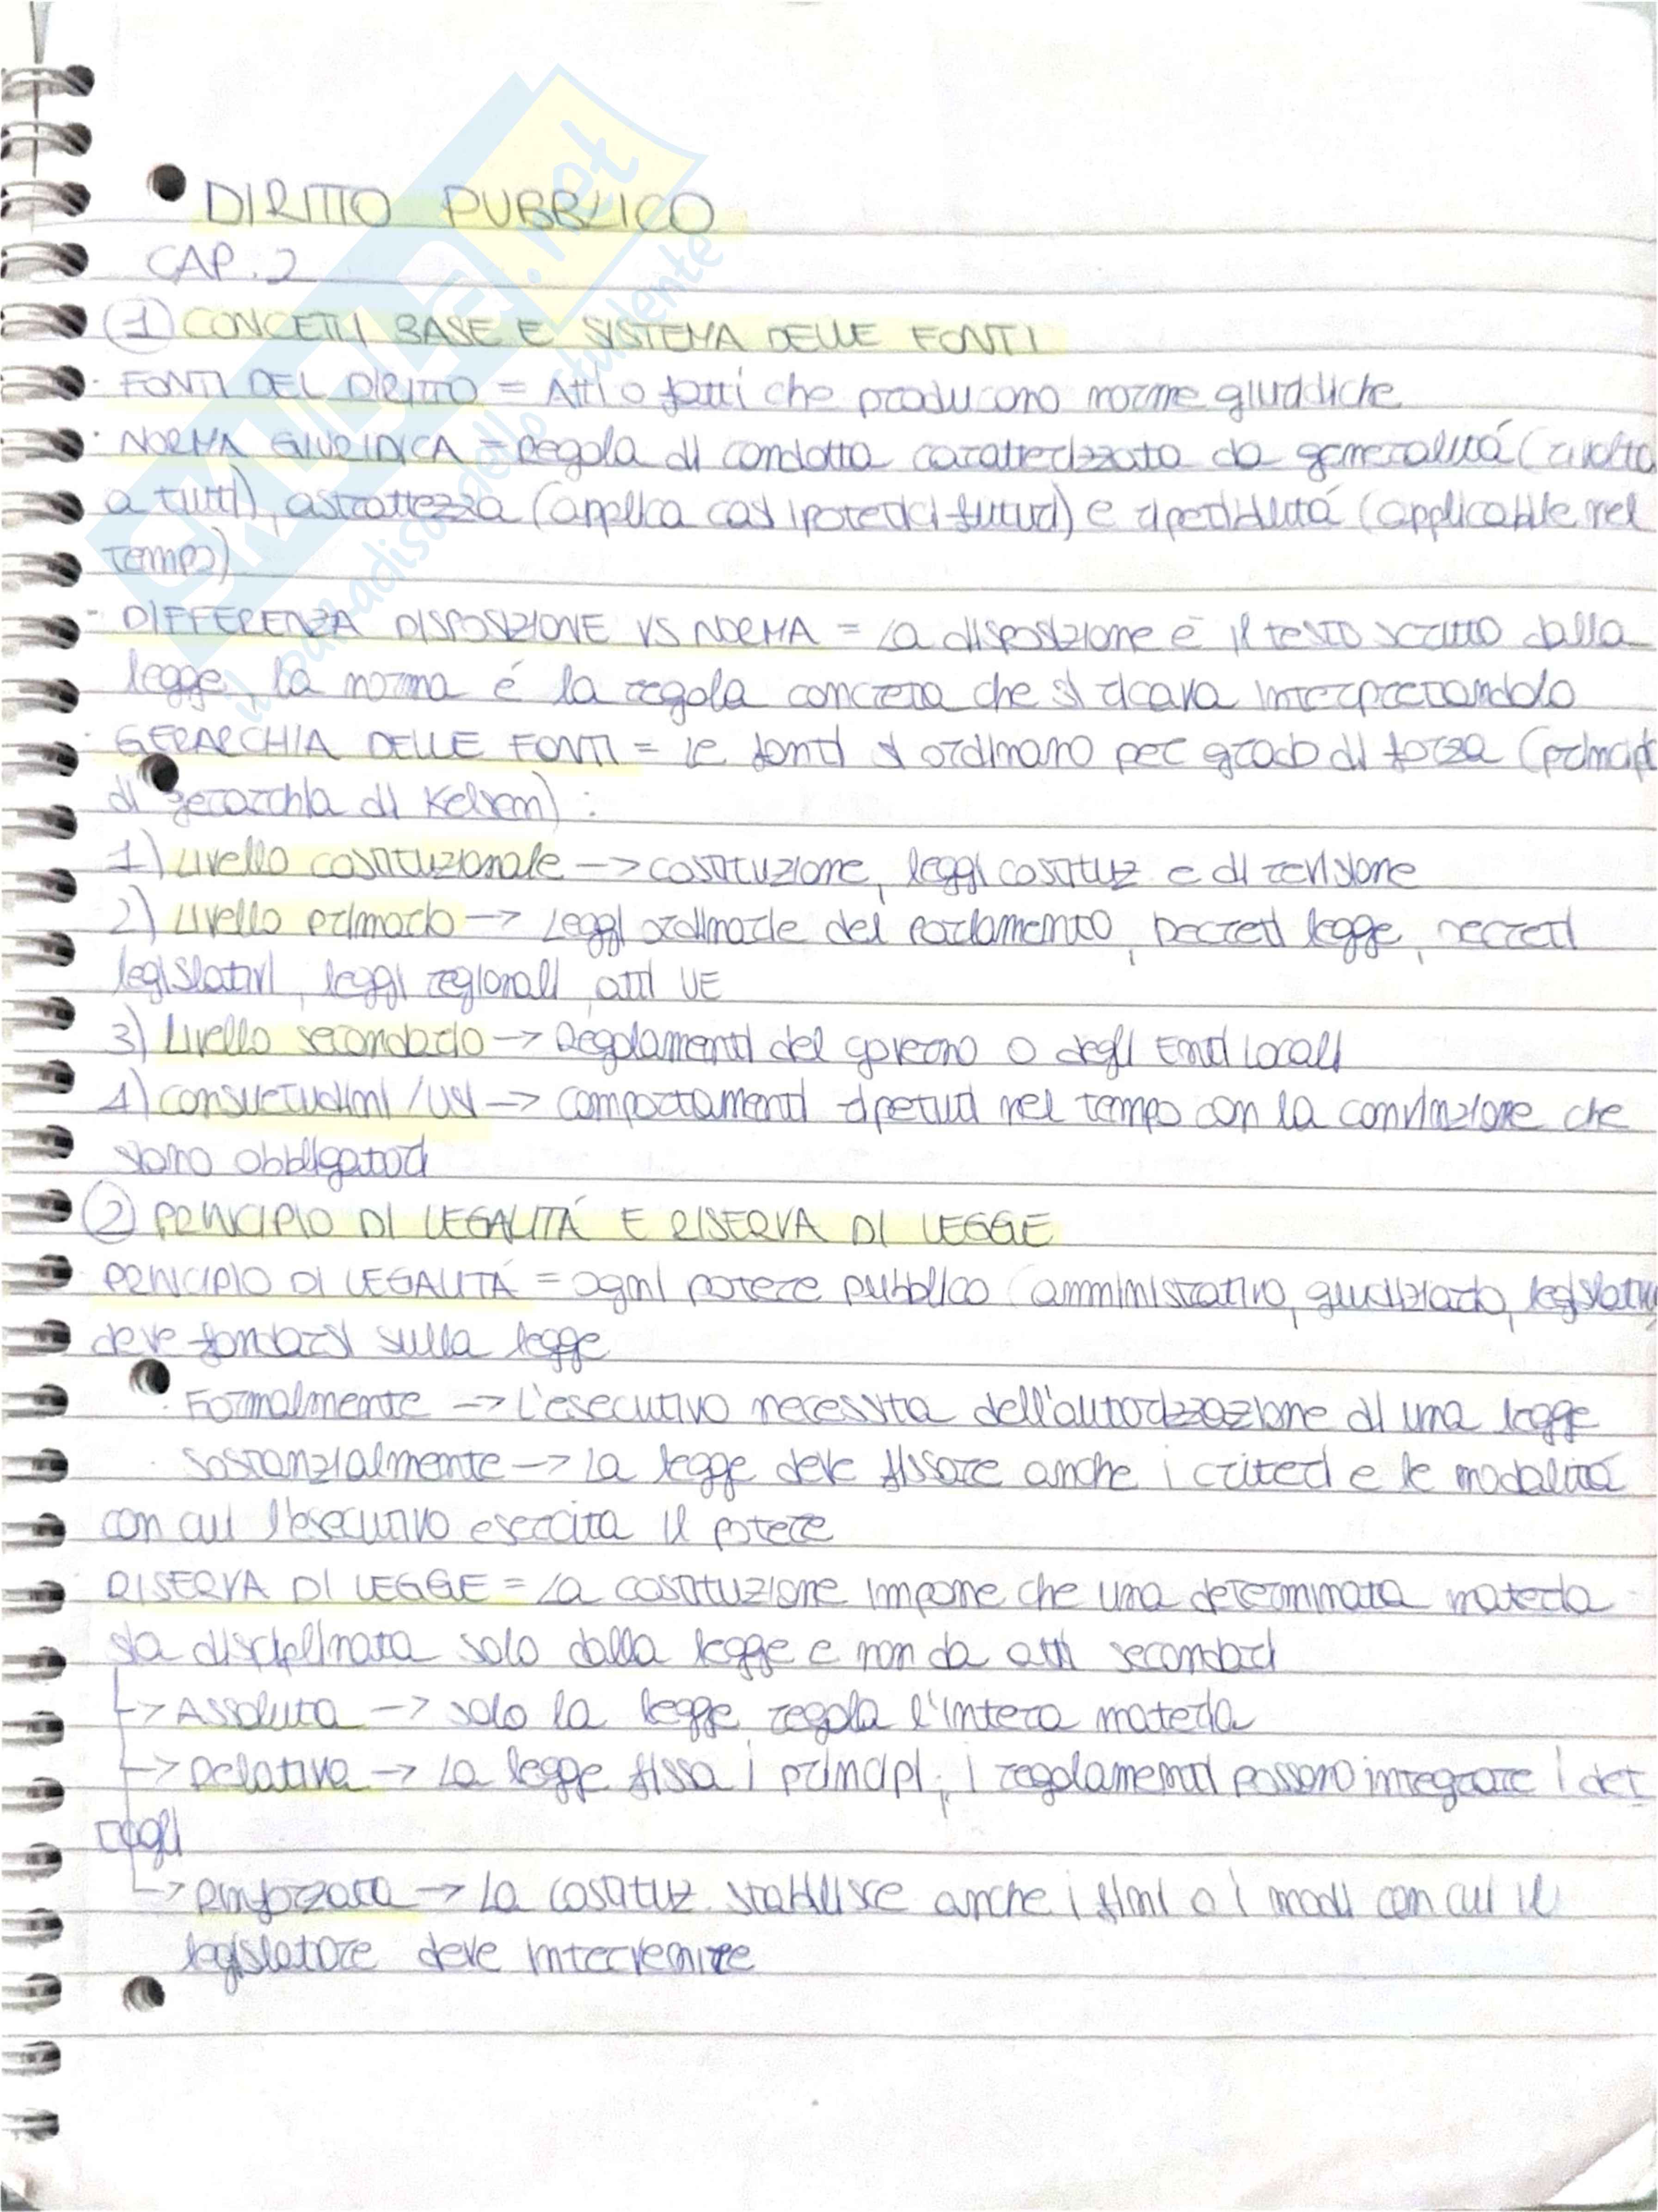 DIRITTO PUBBLICO
CAP. 2
1 CONCETTI BASE E SISTEMA DELLE FONTI
· FONTI DEL DIRITTO = Atti o fatti che producono norme giuridiche
· NORMA GIURIDICA = Regola di condotta caratterizzata da generalitá (rivolta
a tutti), astrattezza (applica casi ipotetici futuri) e ripetibilitá (applicabile nel
tempo)
· DIFFERENZA DISPOSIZIONE VS NORMA = La disposizione é il testo scritto dalla
legge, la norma é la regola concreta che si ricava interpretandolo
· GERARCHIA DELLE FONTI = le fonti si ordinano per grado di forza (principi
di gerarchia di Kelsen) :
1) Livello costituzionale -> costituzione, leggi costituz e di revisione
2) Livello primario -> Leggi ordinarie del parlamento, Decreti legge, Decreti
legislativi, leggi regionali, atti UE
3) Livello secondario -> Regolamenti del governo o degli Enti locali
4) Consuetudini / usi -> comportamenti ripetuti nel tempo con la convinzione che
siano obbligatori
2 PRINCIPIO DI LEGALITÁ E RISERVA DI LEGGE
PRINCIPIO DI LEGALITÁ = ogni potere pubblico (amministrativo, giudiziario, legislativo
deve fondarsi sulla legge
· Formalmente -> L'esecutivo necessita dell'autorizzazione di una legge
· Sostanzialmente -> La legge deve fissare anche i criteri e le modalitá
con cui l'esecutivo esercita il potere
RISERVA DI LEGGE = La costituzione impone che una determinata materia
sia disciplinata solo dalla legge e non da atti secondari
-> Assoluta -> solo la legge regola l'intera materia
-> Relativa -> La legge fissa i principi, i regolamenti possono integrare i det
tagli
-> Rinforzata -> La costituz. stabilisce anche i fini o i modi con cui il
legislatore deve intervenire
SKUOLA.net
il paradiso dello studente